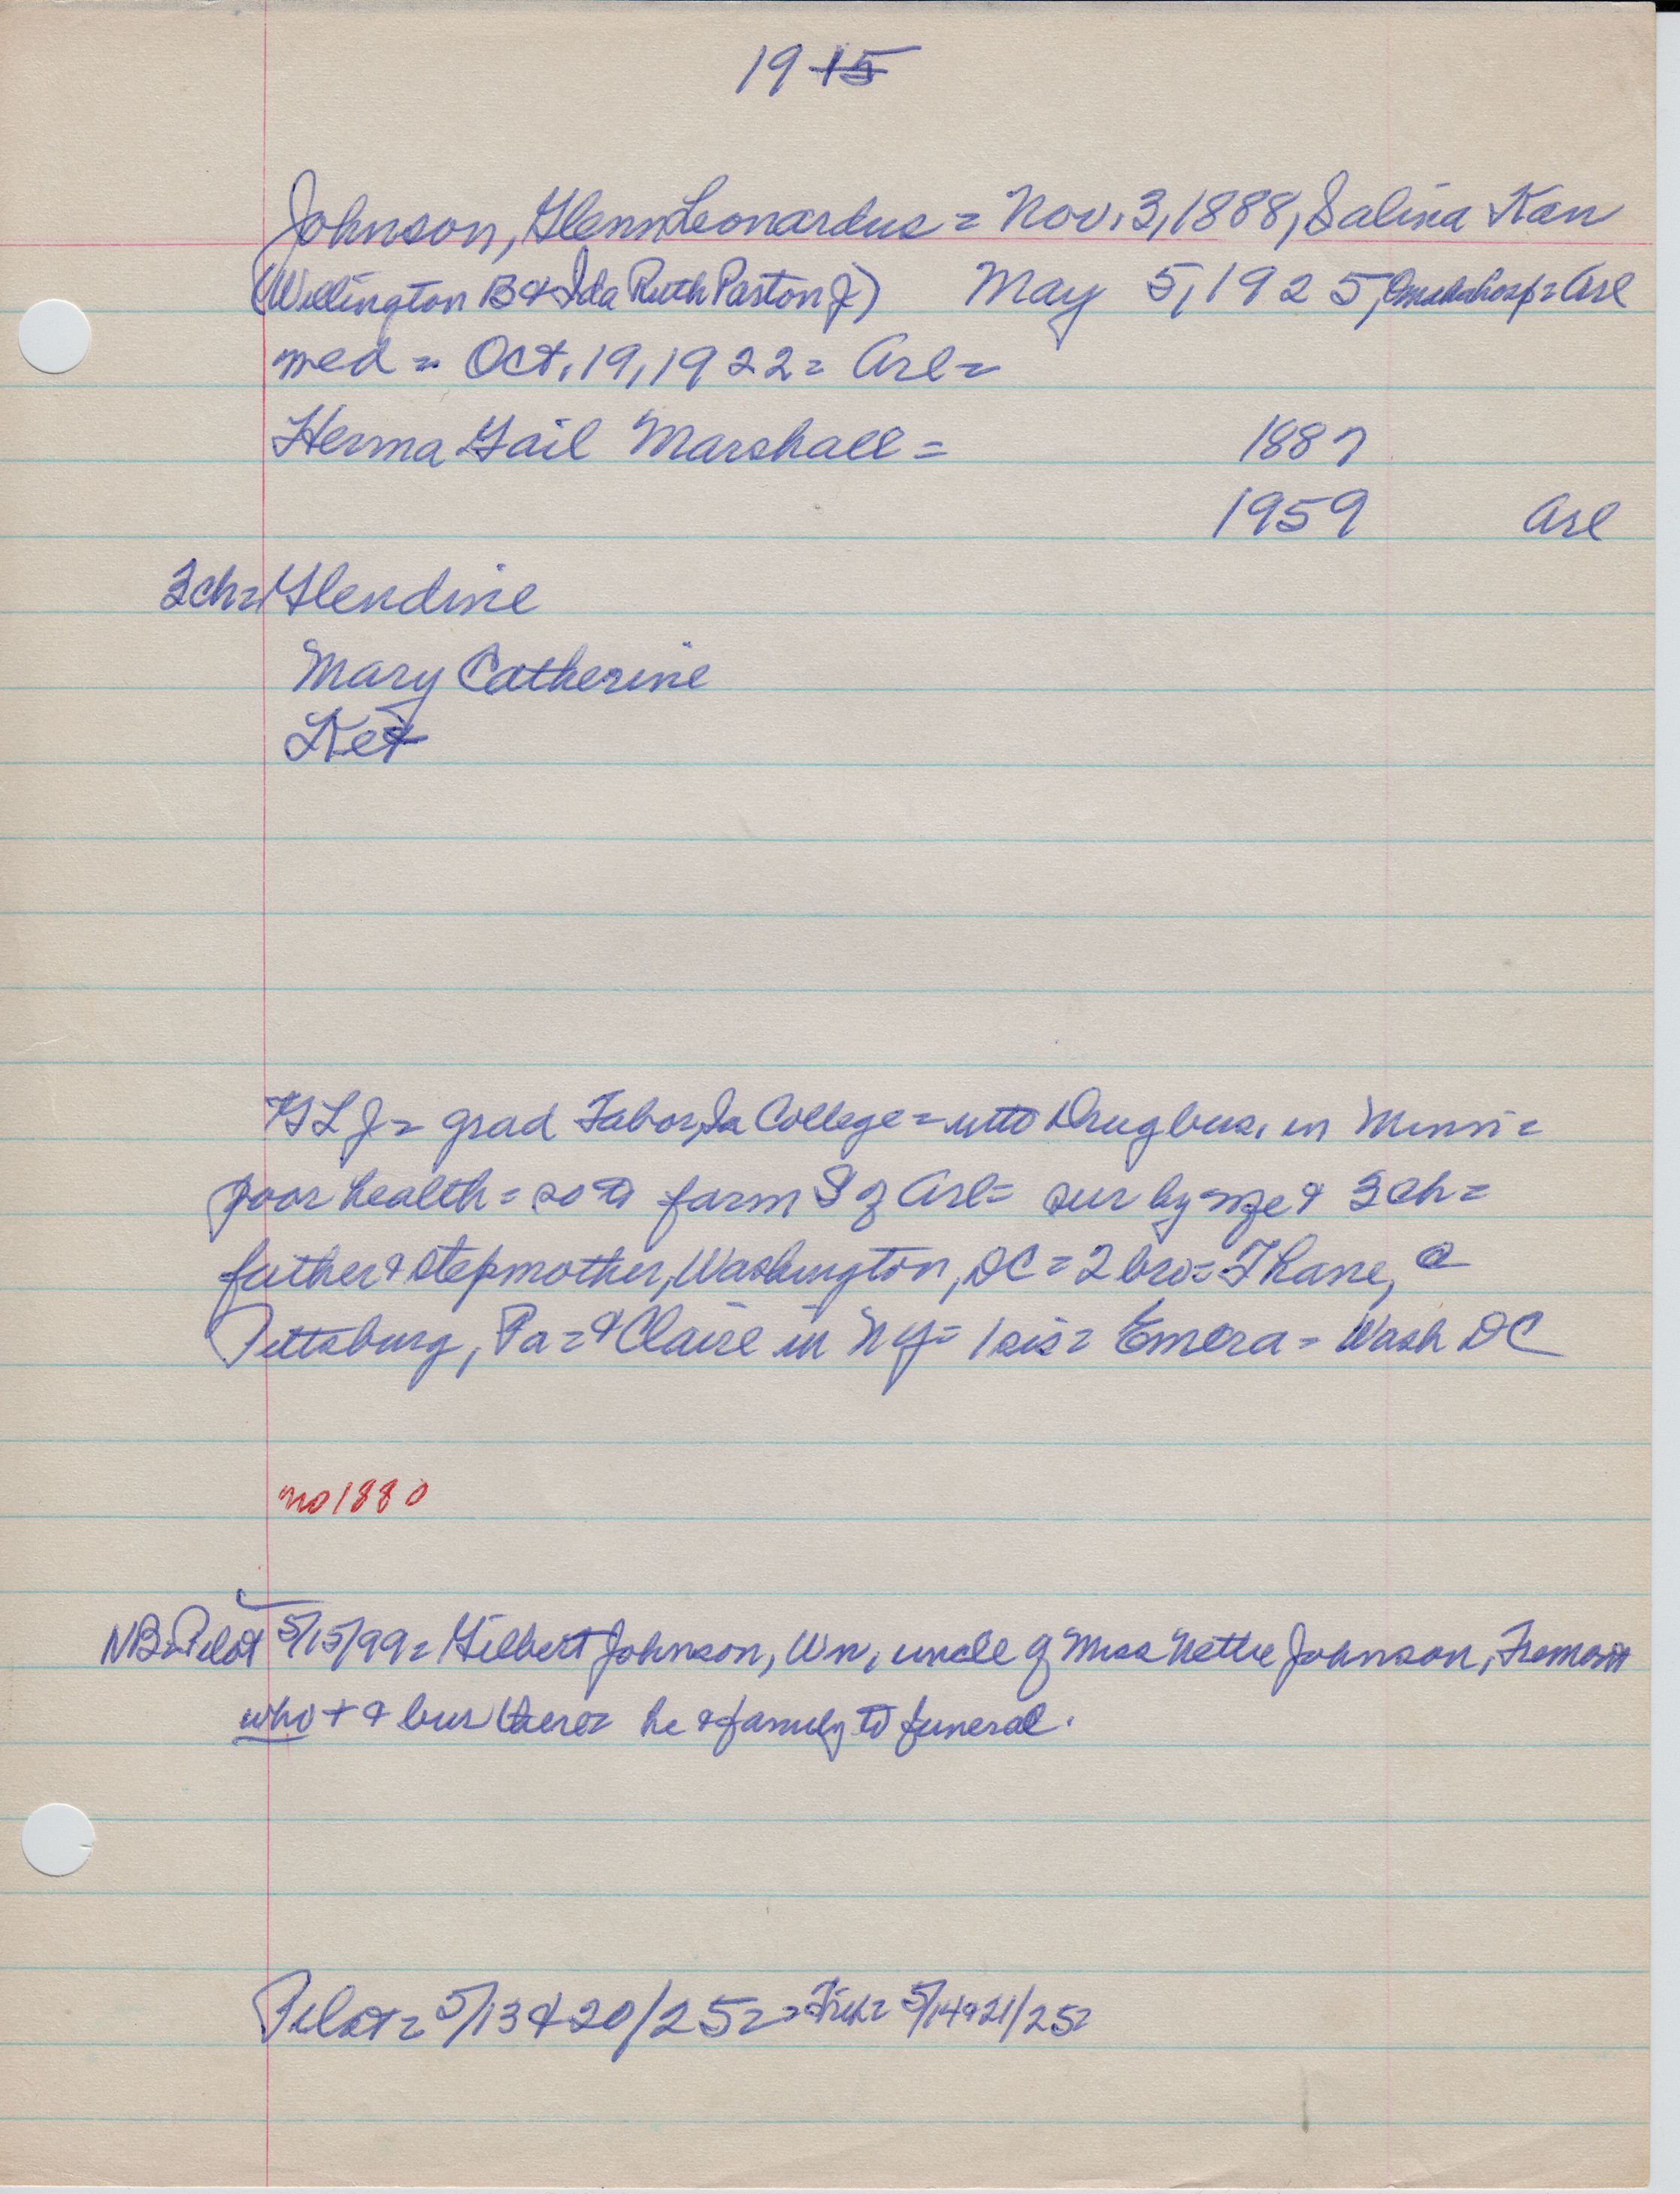 19 15
Johnson, Glenn Leonardus = Nov. 3, 1888, Salina Kan
(Wellington B & Ida Ruth Paston J) May 5, 1925, Omaha hosp = Arl
med = Oct. 19, 1922 = Arl =
Herma Gail Marshall = 1887
1959 Arl
3ch = Glendine
Mary Catherine
Ket
GLJ = grad Tabor, Ia College = into Drug bus. in Minn =
poor health = so to farm S of Arl = sur by wife & 3 ch =
father & stepmother, Washington, DC = 2 bro = Thane, @
Pittsburg, Pa = & Claire in NY = 1 sis = Emera = Wash DC
no 1880
NB = Pilot 5/15/99 = Gilbert Johnson, Wn, uncle of Miss Nettie Johnson, Fremont
who + & bur there = he & family to funeral.
Pilot = 5/13 & 20/25 = = 5/14 & 21/25 =